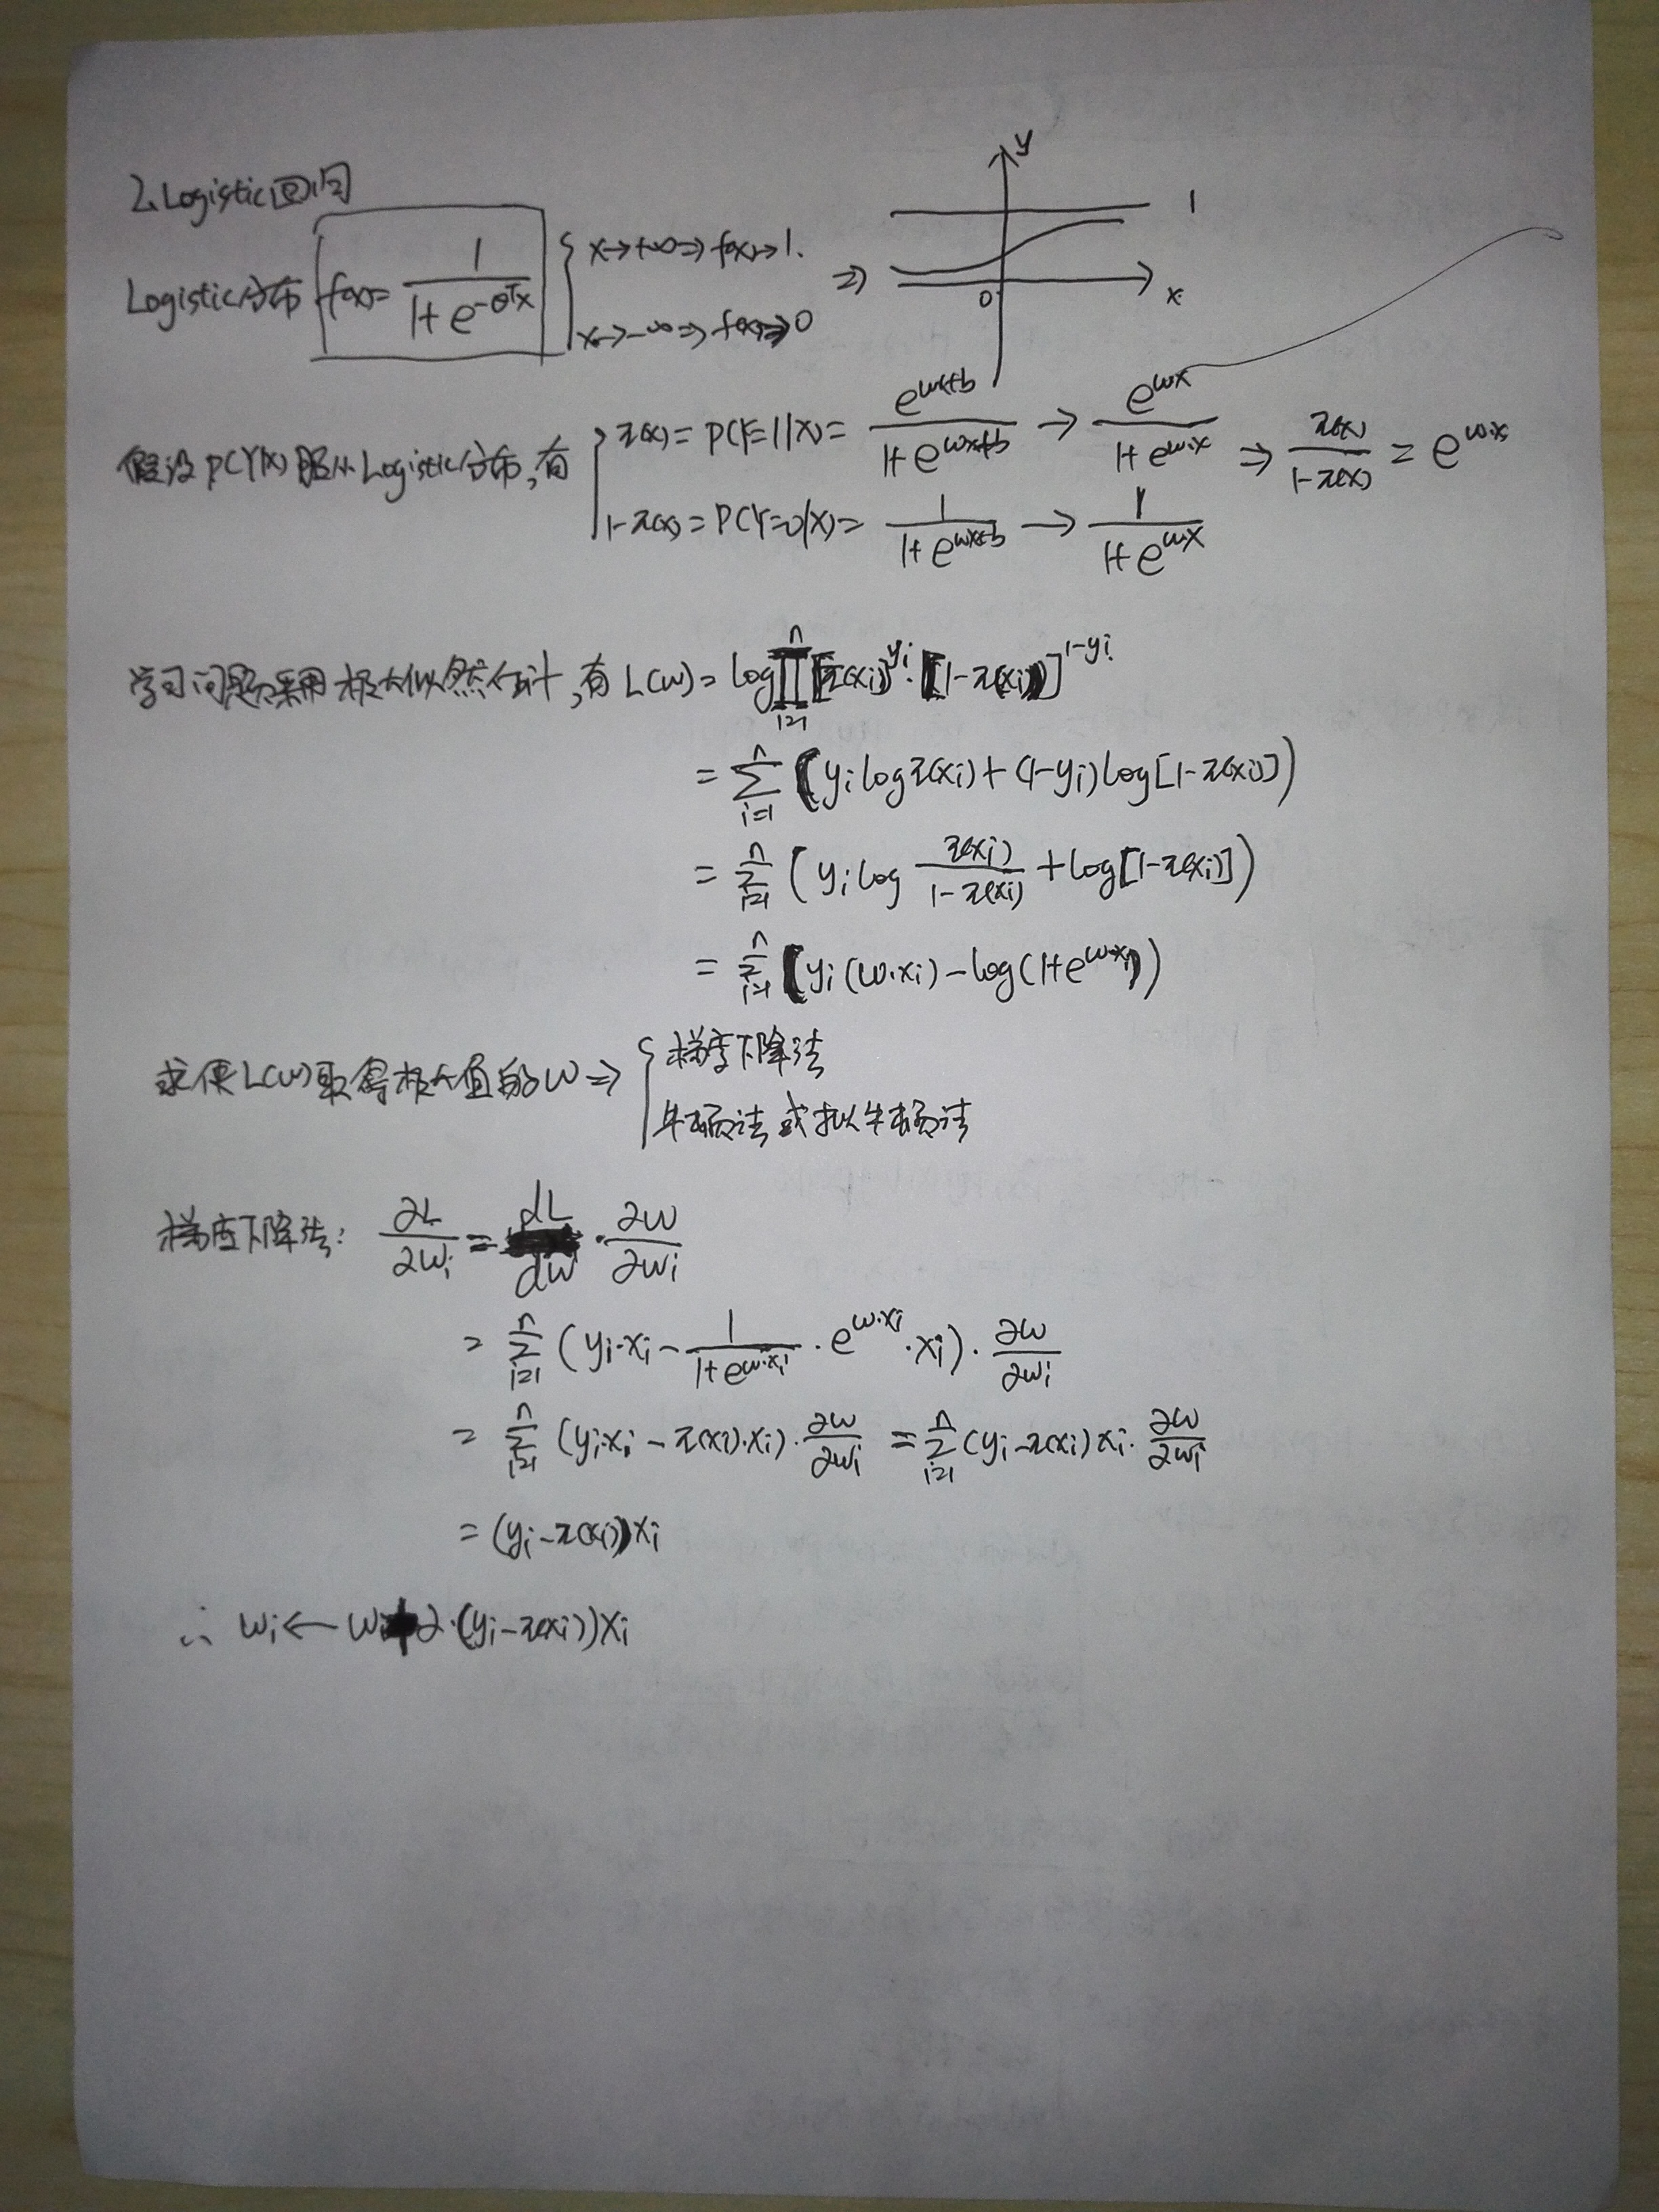 2. Logistic回归
Logistic分布 f(x)= 1/(1+e^(-θ^T x)) { x→+∞⇒f(x)→1. ⇒ y 1 0 x
x→-∞⇒f(x)→0
假设P(Y|X)服从Logistic分布,有 { π(x)=P(Y=1|X)= e^(wx+b)/(1+e^(wx+b)) → e^(w·x)/(1+e^(w·x)) ⇒ π(x)/(1-π(x)) = e^(w·x)
1-π(x)=P(Y=0|X)= 1/(1+e^(wx+b)) → 1/(1+e^(w·x))
学习问题采用极大似然估计,有 L(w)=log∏_(i=1)^n [π(xi)]^(yi)·[1-π(xi)]^(1-yi)
=∑_(i=1)^n (yi logπ(xi)+(1-yi)log[1-π(xi)])
=∑_(i=1)^n (yi log π(xi)/(1-π(xi)) +log[1-π(xi)])
=∑_(i=1)^n (yi(w·xi)-log(1+e^(w·xi)))
求使L(w)取得极大值的w⇒ { 梯度下降法
牛顿法或拟牛顿法
梯度下降法: ∂L/∂wi = dL/dw · ∂w/∂wi
=∑_(i=1)^n (yi·xi- 1/(1+e^(w·xi)) ·e^(w·xi)·xi)· ∂w/∂wi
=∑_(i=1)^n (yi·xi-π(xi)·xi)· ∂w/∂wi =∑_(i=1)^n (yi-π(xi))xi· ∂w/∂wi
=(yi-π(xi))xi
∴ wi←wi+α·(yi-π(xi))xi